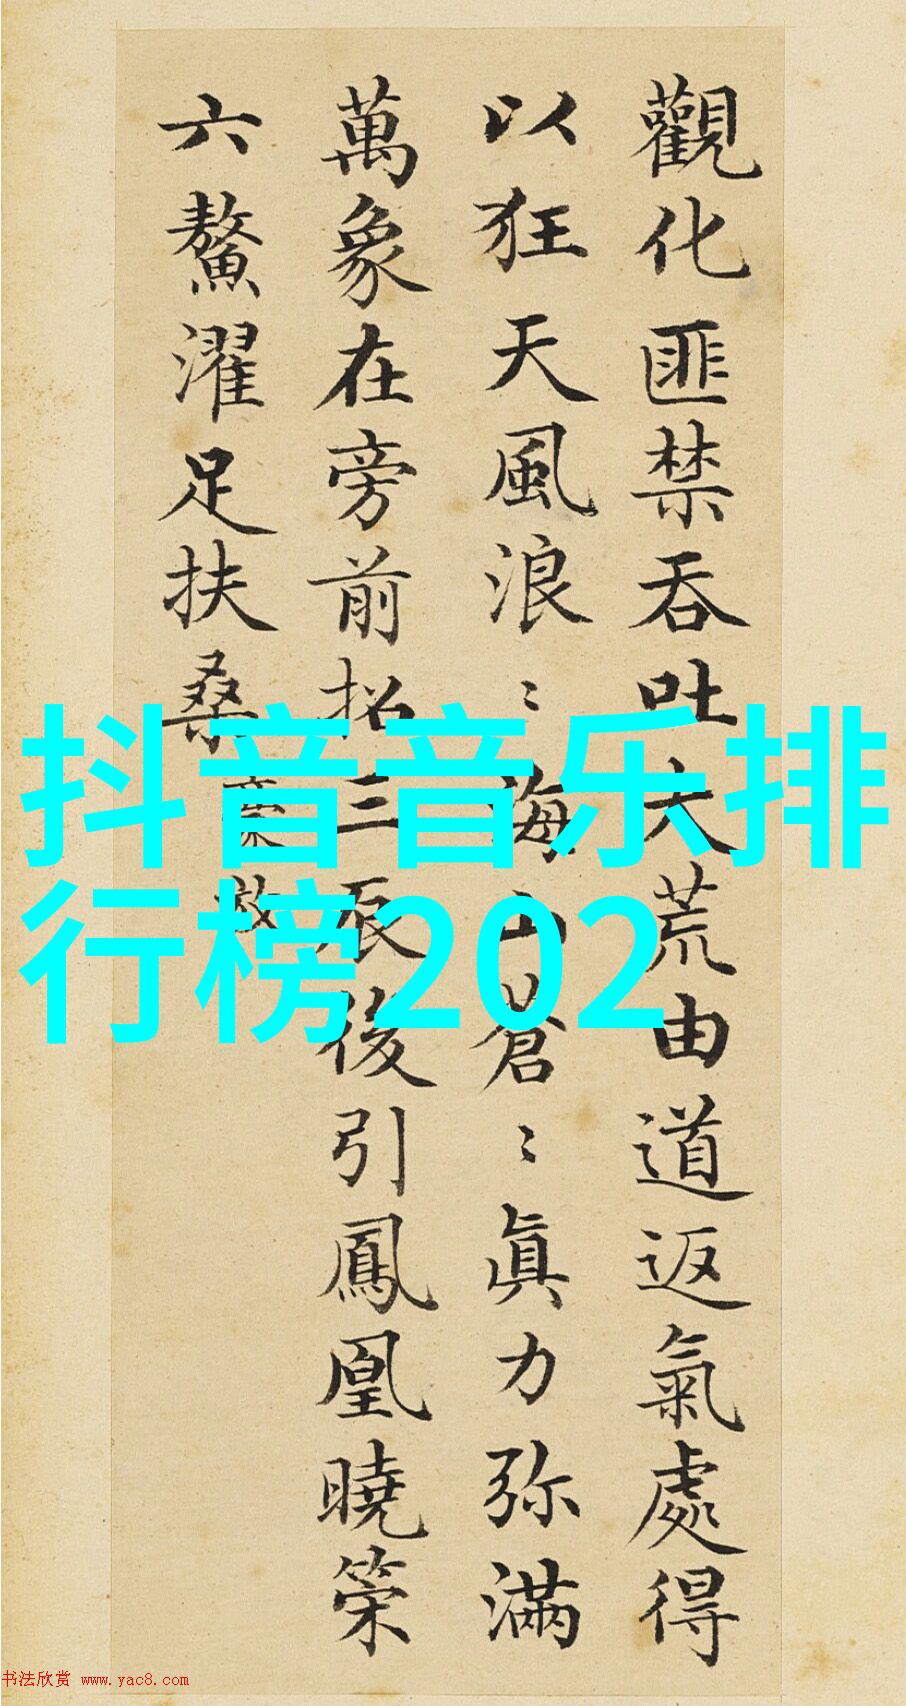 觀化匪禁吞吐大荒由道返氣處得
以狂天風浪〻海山蒼〻眞力弥滿
萬象在旁前招三辰後引鳳凰曉策
六鰲濯足扶桑
抖音音乐排
行榜202
书法欣赏 www.yac8.com